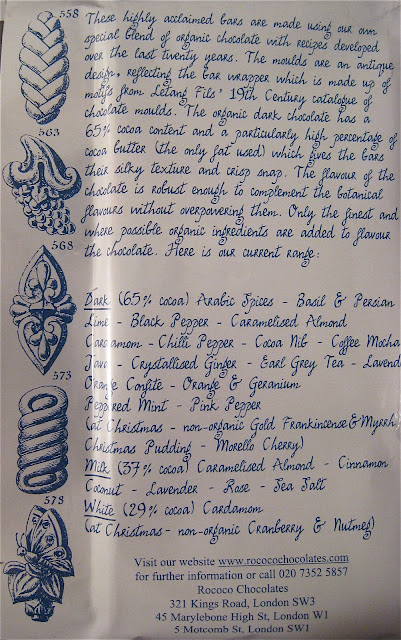 558
563
568
573
578
These highly acclaimed bars are made using our own
special blend of organic chocolate with recipes developed
over the last twenty years. The moulds are an antique
design, reflecting the bar wrapper which is made up of
motifs from Letang Fils' 19th Century catalogue of
chocolate moulds. The organic dark chocolate has a
65% cocoa content and a particularly high percentage of
cocoa butter (the only fat used) which gives the bars
their silky texture and crisp snap. The flavour of the
chocolate is robust enough to complement the botanical
flavours without overpowering them. Only the finest and
where possible organic ingredients are added to flavour
the chocolate. Here is our current range:
Dark (65% cocoa) Arabic Spices - Basil & Persian
Lime - Black Pepper - Caramelised Almond
Cardamom - Chilli Pepper - Cocoa Nib - Coffee Mocha
Java - Crystallised Ginger - Earl Grey Tea - Lavend
Orange Confite - Orange & Geranium
Peppered Mint - Pink Pepper
(at Christmas - non-organic Gold Frankincense&Myrrh
Christmas Pudding - Morello Cherry)
Milk (37% cocoa) Caramelised Almond - Cinnamon
Coconut - Lavender - Rose - Sea Salt
White (29% cocoa) Cardamom
(at Christmas - non-organic Cranberry & Nutmeg)
Visit our website www.rococochocolates.com
for further information or call 020 7352 5857
Rococo Chocolates
321 Kings Road, London SW3
45 Marylebone High St, London W1
5 Motcomb St, London SW1